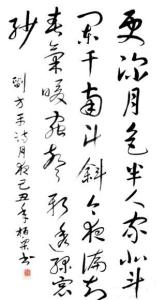 更深月色半人家北斗
闌干南斗斜今夜偏知
春氣暖虫聲新透綠窗
紗
劉方平詩月夜己丑年柏書